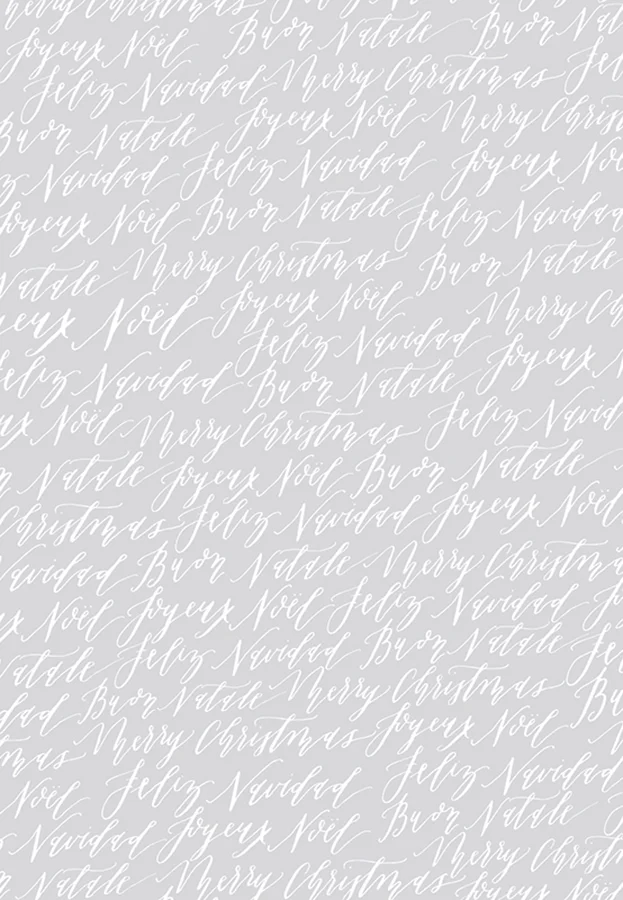 Merry Christmas Joyeux
Joyeux Noël Buon Natale Buon Nat
Feliz Navidad Merry Christmas Fel
Buon Natale Joyeux Noël Merry Chris
z Navidad Feliz Navidad Joyeux No
Joyeux Noël Buon Natale Feliz Navidad
Natale Merry Christmas Buon Natale
eux Noël Joyeux Noël Merry Ch
Feliz Navidad Joyeux
eliz Navidad Buon Natale
ux Noël Merry Christmas Feliz Navid
n Natale Joyeux Noël Buon Natale
Christmas Feliz Navidad Joyeux Noël
Navidad Buon Natale Merry Christma
x Noël Joyeux Noël Feliz Navidad
atale Feliz Navidad Buon Natale Fe
dad Buon Natale Merry Christmas Bu
mas Merry Christmas Joyeux Noël
Noël Feliz Navidad Feliz Navidad
Navidad Joyeux Noël Buon Natale
n Natale Merry Christmas Merry Christ
Joyeux Noël